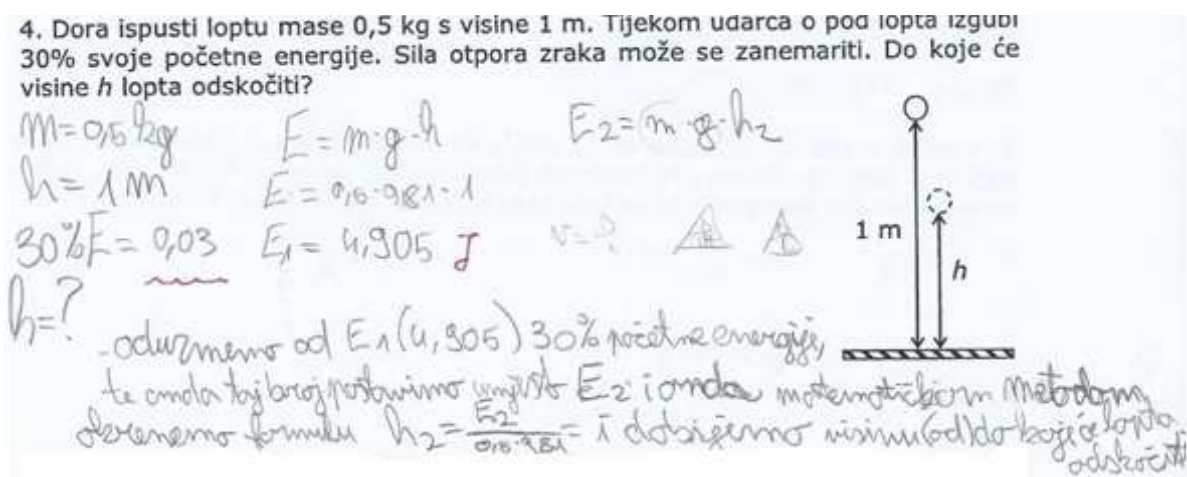 4. Dora ispusti loptu mase 0,5 kg s visine 1 m. Tijekom udarca o pod lopta izgubi
30% svoje početne energije. Sila otpora zraka može se zanemariti. Do koje će
visine h lopta odskočiti?
m=0,5kg E=m·g·h E2=m·g·h2
h=1m E=0,5·9,81·1
30%E=0,03 E1=4,905 J
1 m
h
h=?
-oduzmemo od E1(4,905) 30% početne energije,
te onda taj broj postavimo umjesto E2 i onda matematičkom metodom
okrenemo formulu h2=E2/0,5·9,81= i dobijemo visinu do koje će lopta
odskočiti